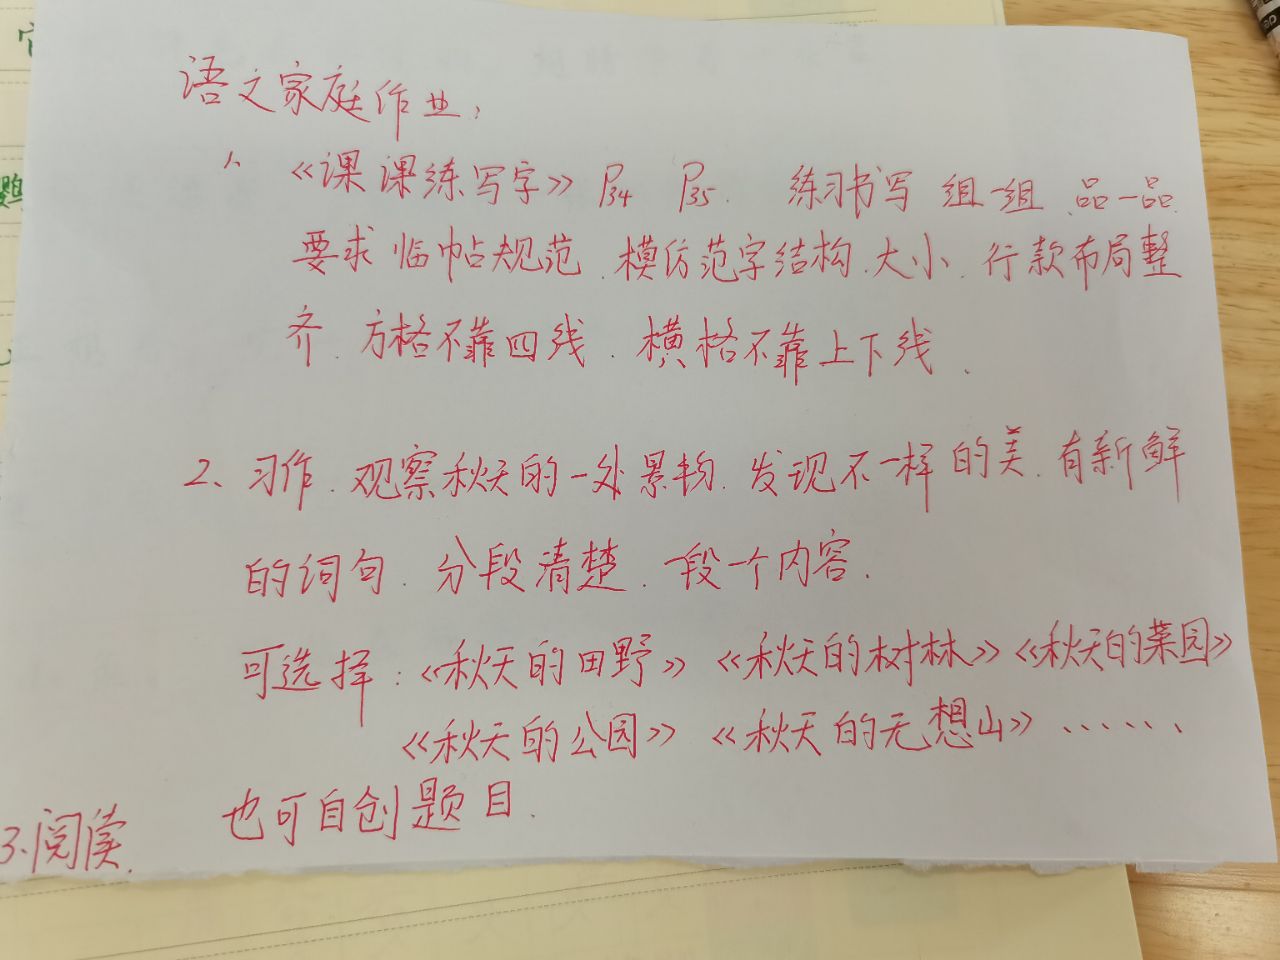 语文家庭作业：
1、《课课练写字》P34 P35. 练习书写 组一组 品一品
要求临帖规范.模仿范字结构.大小.行款布局整
齐.方格不靠四线.横格不靠上下线.
2、习作.观察秋天的一处景物.发现不一样的美.有新鲜
的词句.分段清楚.一段一个内容.
可选择：《秋天的田野》《秋天的树林》《秋天的菜园》
《秋天的公园》《秋天的无想山》……
也可自创题目.
3.阅读.